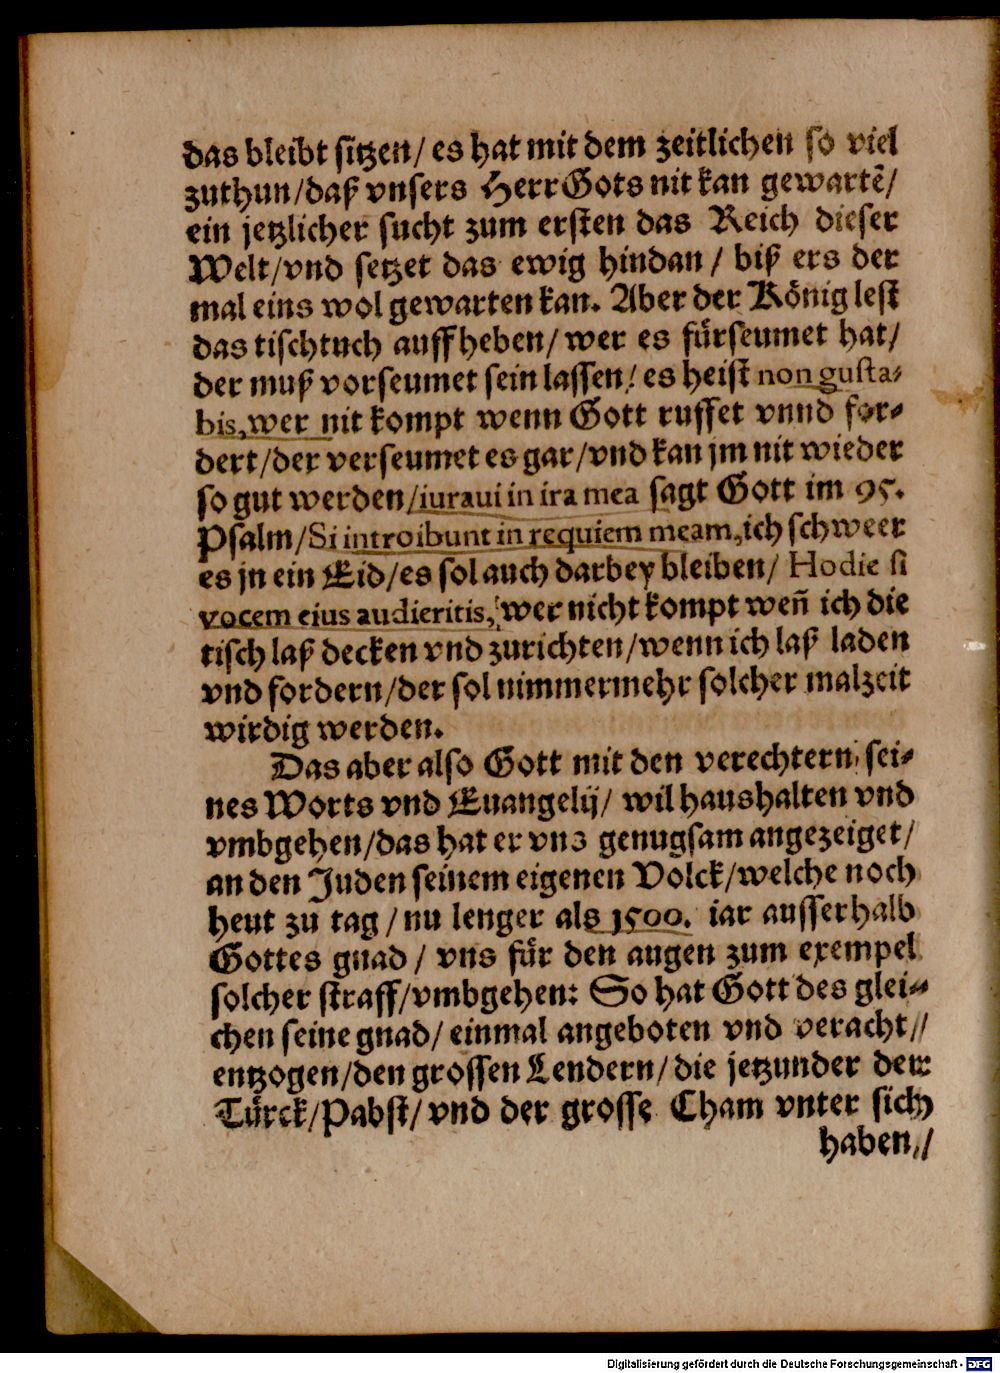 das bleibt sitzen/ es hat mit dem zeitlichen so viel
zuthun/daß vnsers HerrGots nit kan gewartẽ/
ein jetzlicher sucht zum ersten das Reich dieser
Welt/vnd setzet das ewig hindan / biß ers der
mal eins wol gewarten kan. Aber der König lest
das tischtuch auffheben/ wer es fürseumet hat/
der muß vorseumet sein lassen/ es heist non gusta-
bis, wer nit kompt wenn Gott ruffet vnnd for-
dert/der verseumet es gar/vnd kan jm nit wieder
so gut werden/iuraui in ira mea sagt Gott im 95.
Psalm/Si introibunt in requiem meam, ich schweer
es jn ein Eid/es sol auch darbey bleiben/ Hodie si
vocem eius audieritis, wer nicht kompt weñ ich die
tisch laß decken vnd zurichten/wenn ich laß laden
vnd fordern/der sol nimmermehr solcher malzeit
wirdig werden.
Das aber also Gott mit den verechtern sei-
nes Worts vnd Euangelij/ wil haushalten vnd
vmbgehen/das hat er vns genugsam angezeiget/
an den Juden seinem eigenen Volck/welche noch
heut zu tag / nu lenger als 1500. iar ausserhalb
Gottes gnad / vns für den augen zum exempel
solcher straff/vmbgehen: So hat Gott des glei-
chen seine gnad/ einmal angeboten vnd veracht/
entzogen/den grossen Lendern/ die jetzunder der
Türck/Pabst/ vnd der grosse Cham vnter sich
haben/
Digitalisierung gefördert durch die Deutsche Forschungsgemeinschaft - DFG